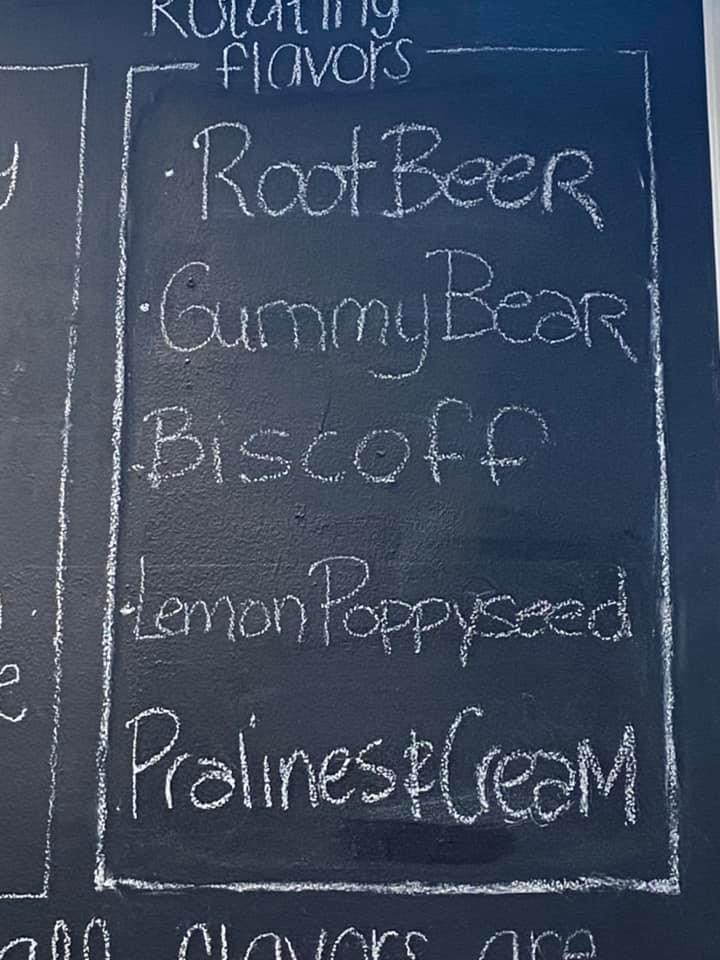 Rotating
flavors
· Root Beer
· Gummy Bear
· Biscoff
· Lemon Poppyseed
· Pralines & Cream
all flavors are